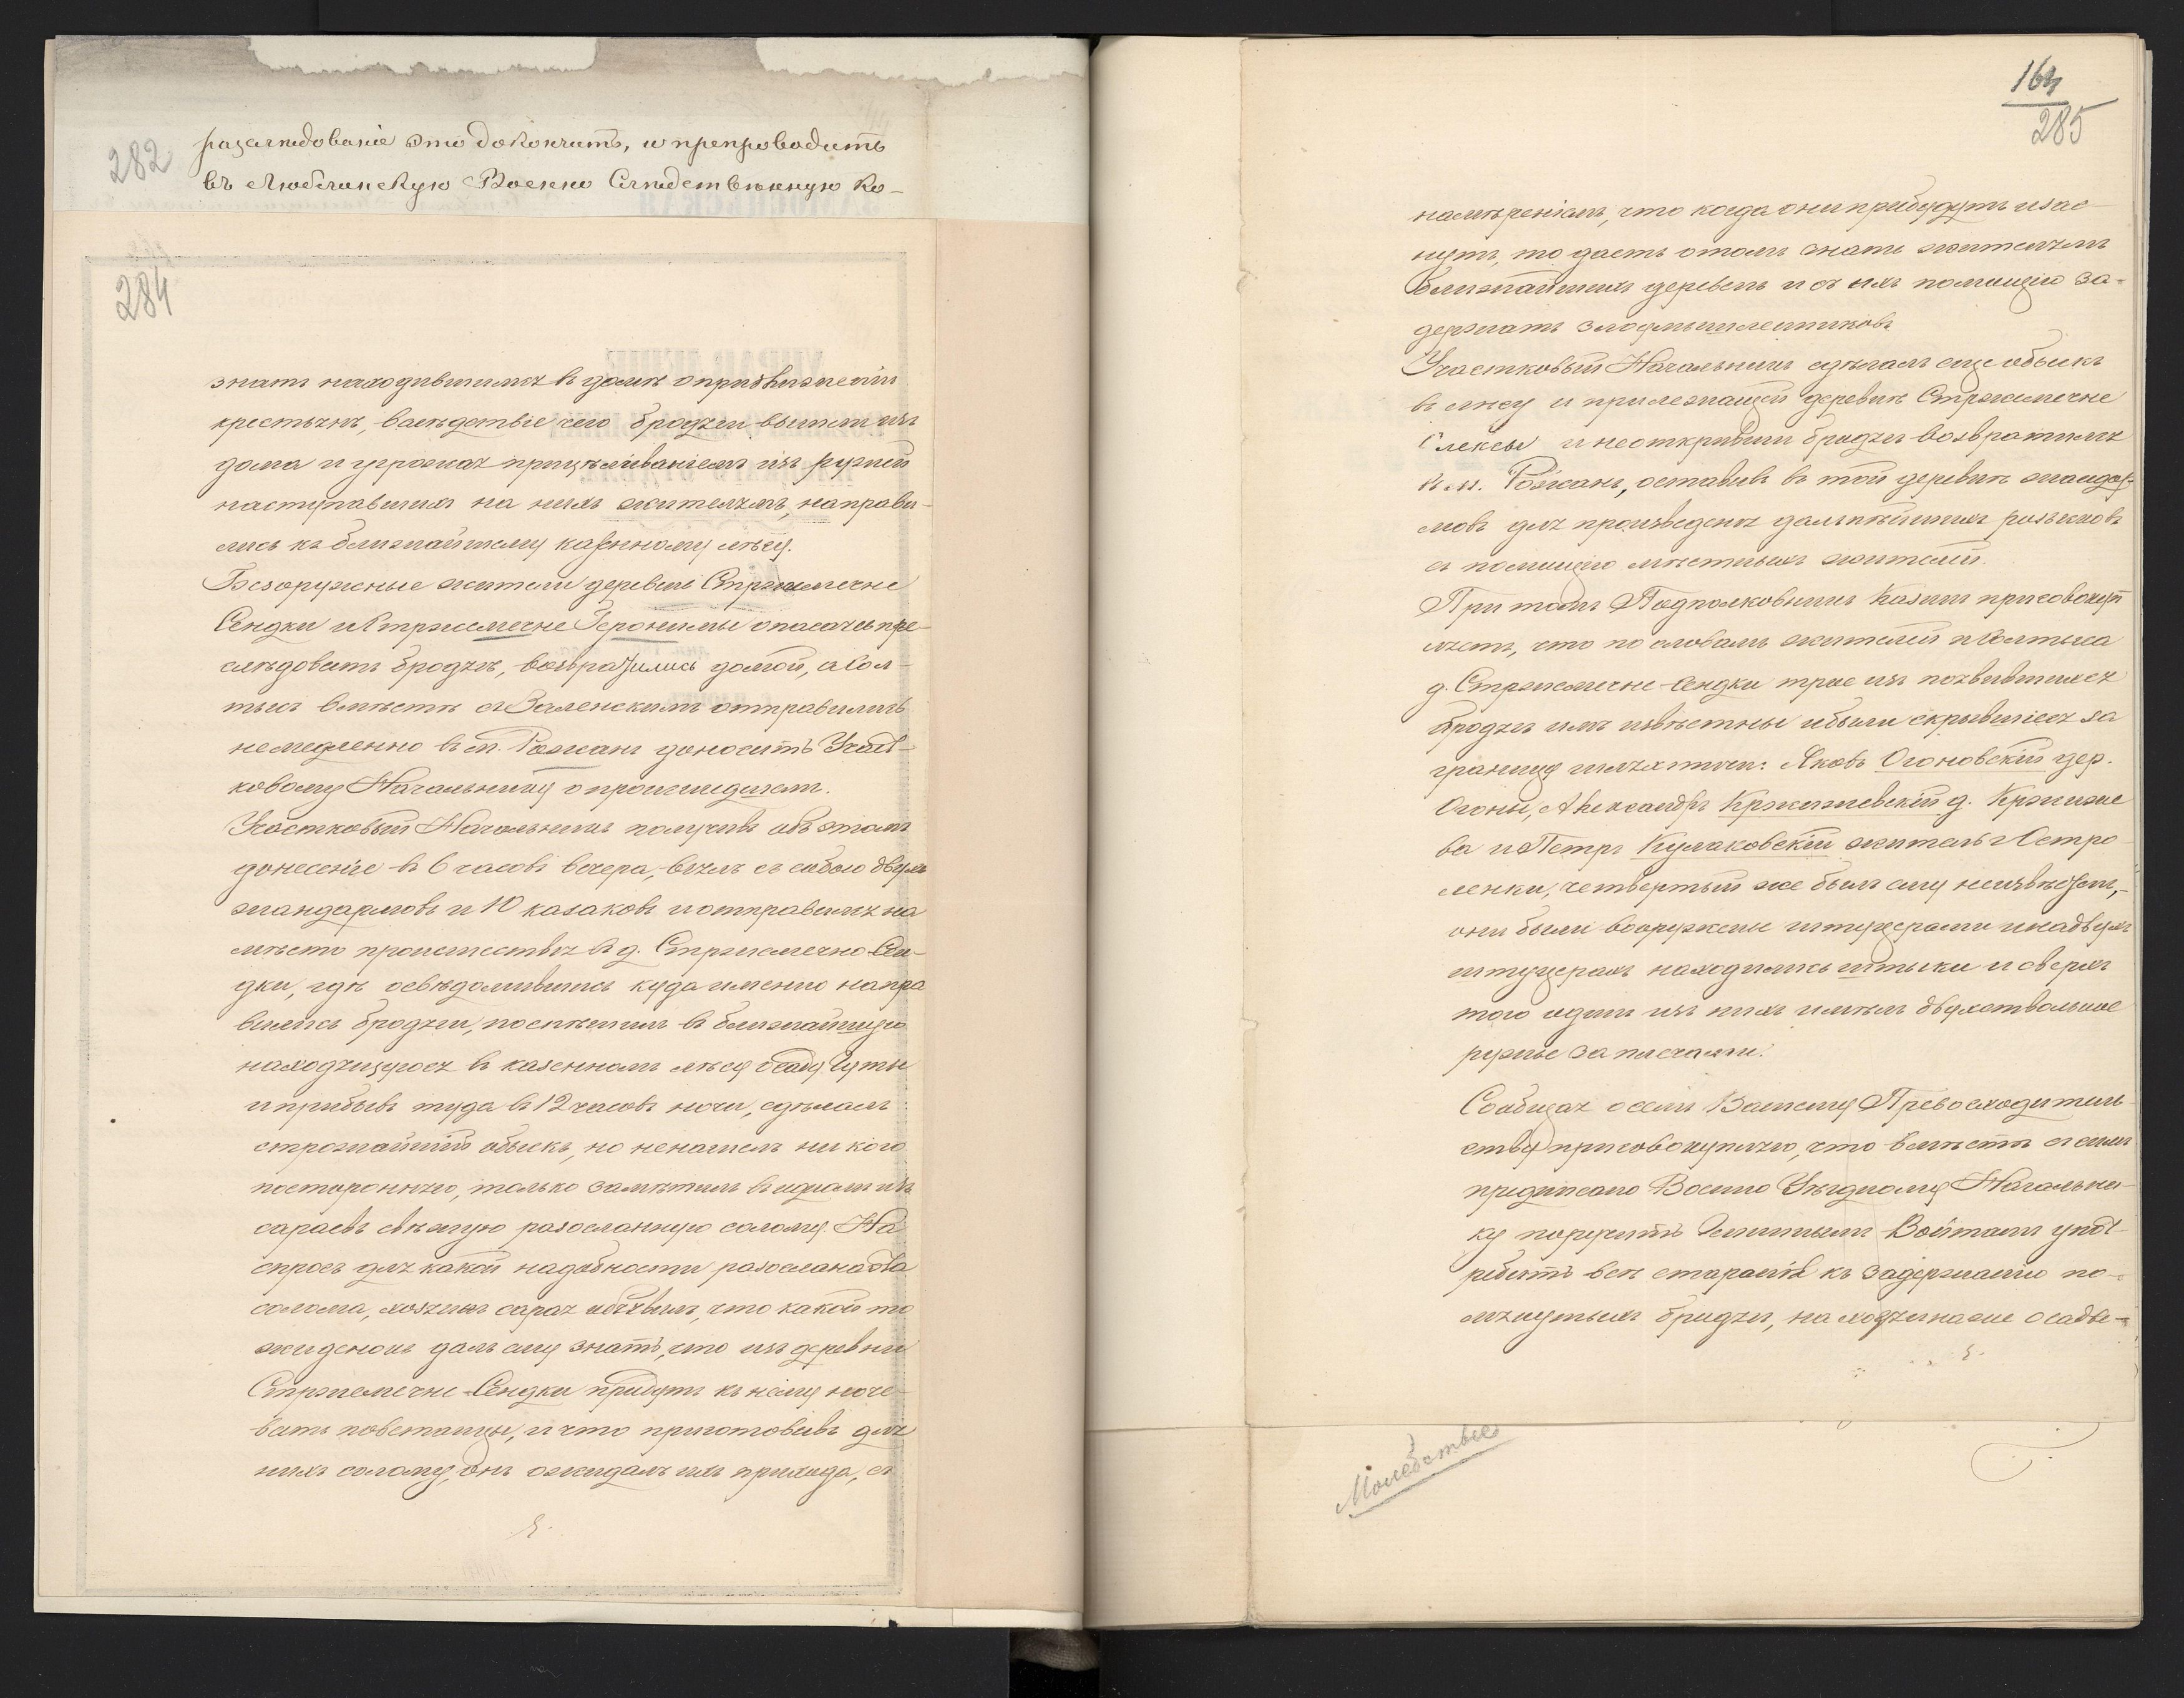 282
разслѣдованіе это докончить, и препроводить
въ Люблинскую Военно Слѣдственную Ко-
284
знать находившимся въ домѣ о приближеніи
крестьянъ, вслѣдствіе чего бродяги вышли изъ
дома и угрожая прицѣливаніемъ изъ ружей
наступавшимъ на нихъ жителямъ, направи-
лись къ ближайшему казенному лѣсу.
Безоружные жители деревень Стржемечне
Сендки и Стржемечне Геронимы опасаясь пре-
слѣдовать бродягъ, возвратились домой, а Сол-
тысъ вмѣстѣ съ Валенскимъ отправились
немедленно въ м. Рожанъ доносить Участ-
ковому Начальнику о происшедшемъ.
Участковый Начальникъ получивъ объ этомъ
донесеніе въ 6 часовъ вечера, взялъ съ собою двухъ
жандармовъ и 10 казаковъ и отправился на
мѣсто происшествія въ д. Стржемечно-Сен-
дки, гдѣ освѣдомившись куда именно напра
вились бродяги, поспѣшилъ въ ближайшую
находящуюся въ казенномъ лѣсу Гуты
и прибывъ туда въ 12 часовъ ночи, сдѣлалъ
строжайшій обыскъ, но не нашелъ никого
посторонняго, только замѣтилъ въ одномъ изъ
сараевъ свѣжую разосланную солому. На
спросъ для какой надобности разослана эта
солома, хозяинъ сарая объявилъ, что какой то
жиденокъ далъ ему знать, что изъ деревни
Стржемечне-Сендки придутъ къ нему ноче-
вать повстанцы, и что приготовивъ для
нихъ солому, онъ ожидалъ ихъ прихода, съ
164
285
намѣреніемъ, что когда они прибудутъ и зас-
нутъ, то дастъ о томъ знать жителямъ
ближайшихъ деревень и съ ихъ помощію за-
держать злоумышленниковъ
Участковый Начальникъ сдѣлалъ еще обыскъ
въ лѣсу и прилежащей деревнѣ Стржемечне
Олексы и неоткрывши бродягъ возвратился
въ м. Рожанъ, оставивъ въ той деревнѣ жандар-
мовъ для произведенія дальнѣйшихъ розысковъ
съ помощію мѣстныхъ жителей.
При томъ Подполковникъ Казинъ присовокуп
ляетъ, что по словамъ жителей и Солтыса
д. Стржемечне-Сендки трое изъ появившихся
бродягъ имъ извѣстны и были скрывшіеся за
границу шляхтичи: Яковъ Огоновскій дер.
Огоны, Александръ Кржижевскій д. Кржиже
ва и Петръ Кулаковскій житель г. Остро
ленки, четвертый же былъ ему неизвѣстенъ,-
они были вооружены штуцерами и на двухъ
штуцерахъ находились штыки и сверхъ
того одинъ изъ нихъ имѣлъ двухствольное
ружье за плечами.
Сообщая о семъ Вашему Превосходитель-
ству присовокупляю, что вмѣстѣ съ симъ
предписано Военно Уѣздному Начальни-
ку поручить Гминнымъ Войтамъ упот-
ребить всѣ старанія къ задержанію по-
мянутыхъ бродягъ,